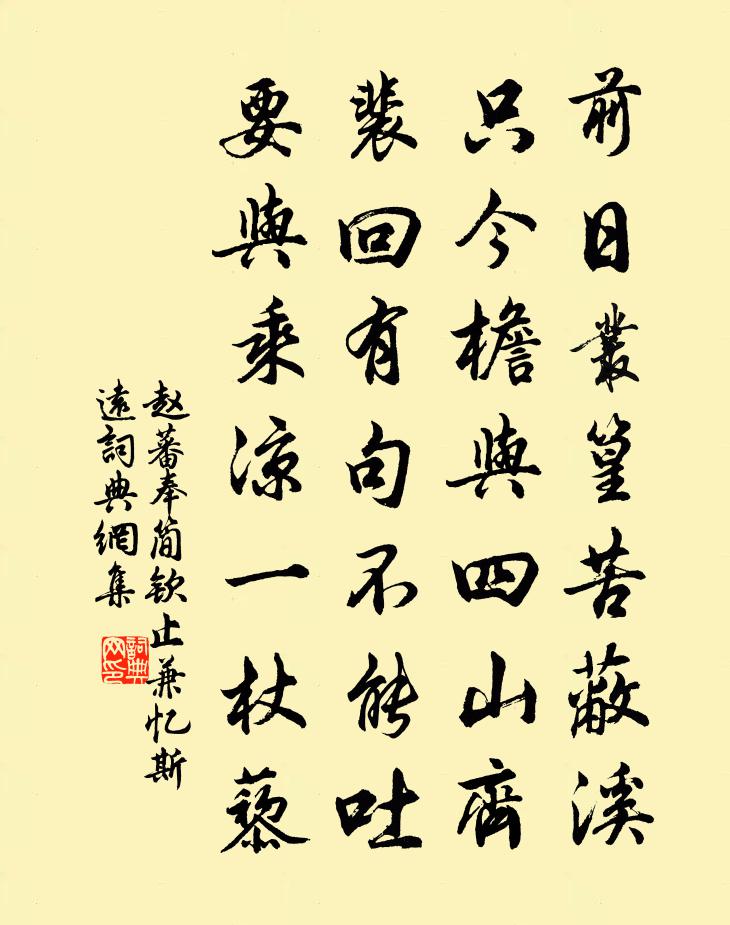 前日叢篁苦蔽溪
只今檐與四山齊
裴回有句不能吐
要與乘涼一杖藜
赵蕃奉简欽止兼忆斯
遠詞典網集
詞典网印